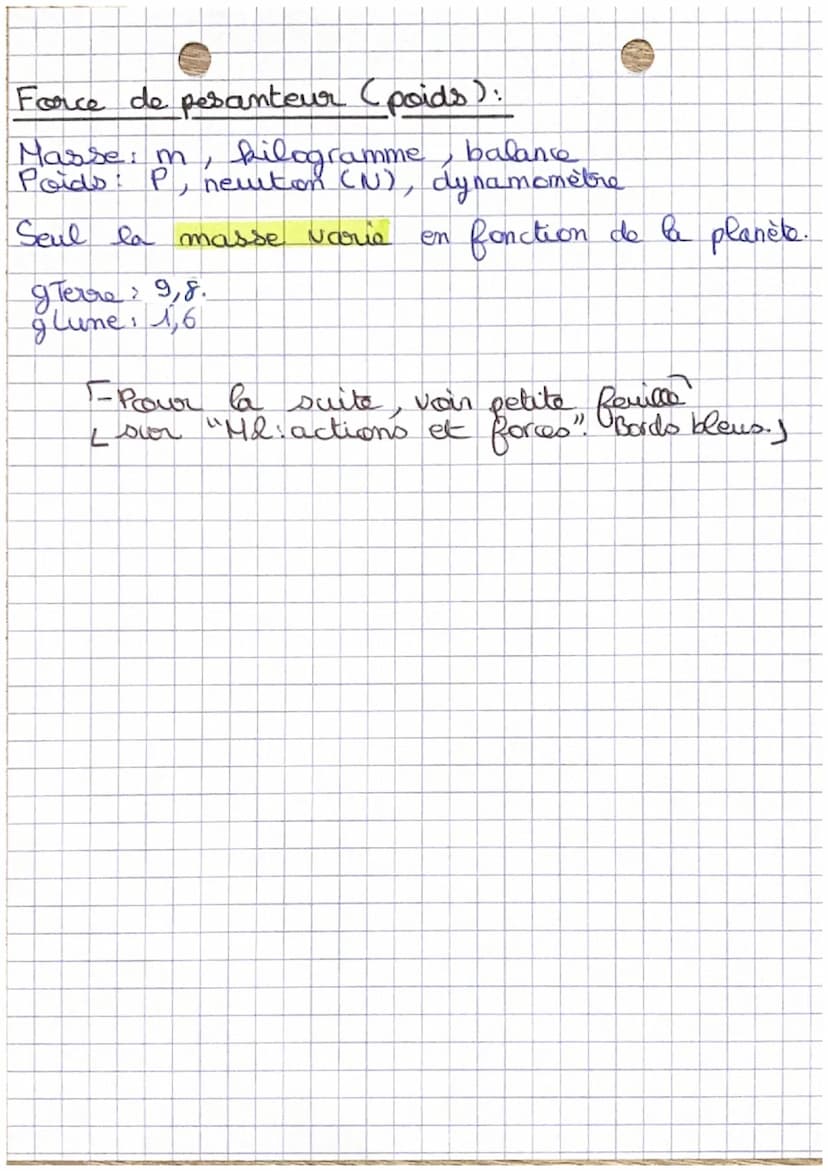 Force de pesanteur (poids):
Masse: m, kilogramme, balance
Poids: P, newton (N), dynamomètre
Seul la masse varie en fonction de la planète.
gTerre: 9,8.
gLune: 1,6
- Pour la suite, voir petite feuille
sur "M2: actions et forces". Bords bleus.